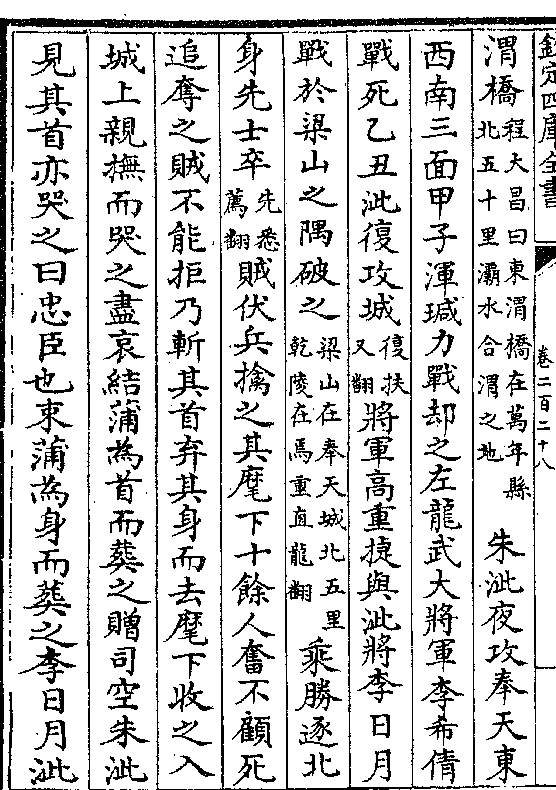 欽定四庫全書
卷二百二十八
渭橋程大昌曰東渭橋在萬年縣北五十里灞水合渭之地 朱泚夜攻奉天東
西南三面甲子渾瑊力戰却之左龍武大將軍李希倩
戰死乙丑泚復攻城復扶又翻將軍高重捷與泚將李日月
戰於梁山之隅破之梁山在奉天城北五里乾陵在焉重直龍翻乘勝逐北
身先士卒先悉薦翻賊伏兵擒之其麾下十餘人奮不顧死
追奪之賊不能拒乃斬其首弃其身而去麾下收之入
城上親撫而哭之盡哀結蒲為首而葬之贈司空朱泚
見其首亦哭之曰忠臣也束蒲為身而葬之李日月泚